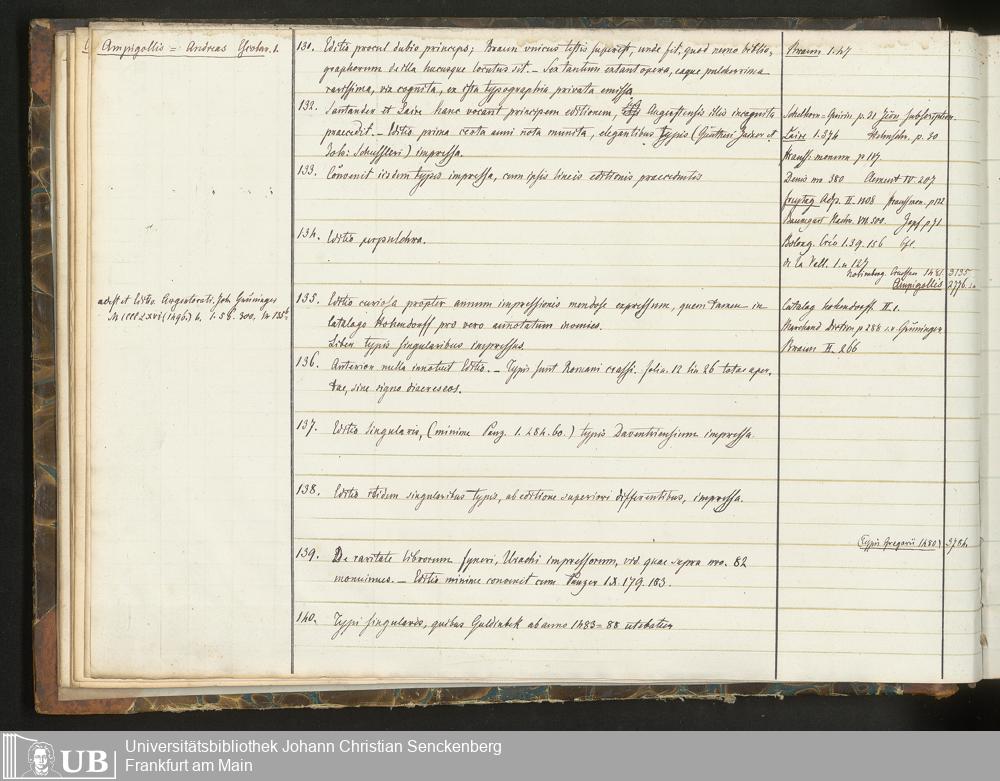 Ampigollis = Andreas Escobar. 1.
131. Editio procul dubio princeps; Braun unicus testis superest, unde fit, quod nemo biblio-
graphorum de illa hucusque locutus sit. – Sex tantum extant opera, eaque pulcherrima
rarissima, vix cognita, ex ista typographia privata emissa
Braun 1.47
132. Santander et Laire hanc vocant principem editionem, Augustensis illis incognita
praecedit. – Editio prima certa anni nota munita, elegantibus typis (Güntheri Zainer et
Joh: Schussleri) impressa.
p. 21
Laire 1.376 p. 20
p 117
133. Convenit iisdem typis impressa, cum ipsis lineis editionis praecedentis
Denis no 380 Clement IV. 207
Freytag Adp. II. 1808
Baumgart VII 500. Zapf p 31
134. Editio perpulchra.
1.39. 156
de la Vall. 1. n 127
1481. 3135
Ampigollis 2776
adest et Editio Argentorati. Joh Grüninger
135. Editio curiosa propter annum impressionis mendose expressum, quem tamen in
Catalogo Hohendorff pro vero annotatum invenies.
Liber typis singularibus impressus.
Catalog Hohendorff. II. 1.
Marchand Diction p 288 Grüninger
Braun II. 266
136. Anterior nulla innotuit Editio. – Typi sunt Romani crassi. folia. 12 lin 26 totae aper-
tae, sine signo diaereseos.
137. Editio singularis, (minime Panz. 1. 284. 60.) typis Daventriensium impressa.
138. Editio itidem singularibus typis, ab editione superiori differentibus, impressa.
(Typis Gregorii 1480)
139. De raritate librorum Fyneri, Urachi impressorum, vid. quae supra nro. 82
monuimus. – Editio minime convenit cum Panzer IX. 179. 183.
140. Typi singulares, quibus Guldinbek ab anno 1483 = 88 utebatur
UB
Universitätsbibliothek Johann Christian Senckenberg
Frankfurt am Main